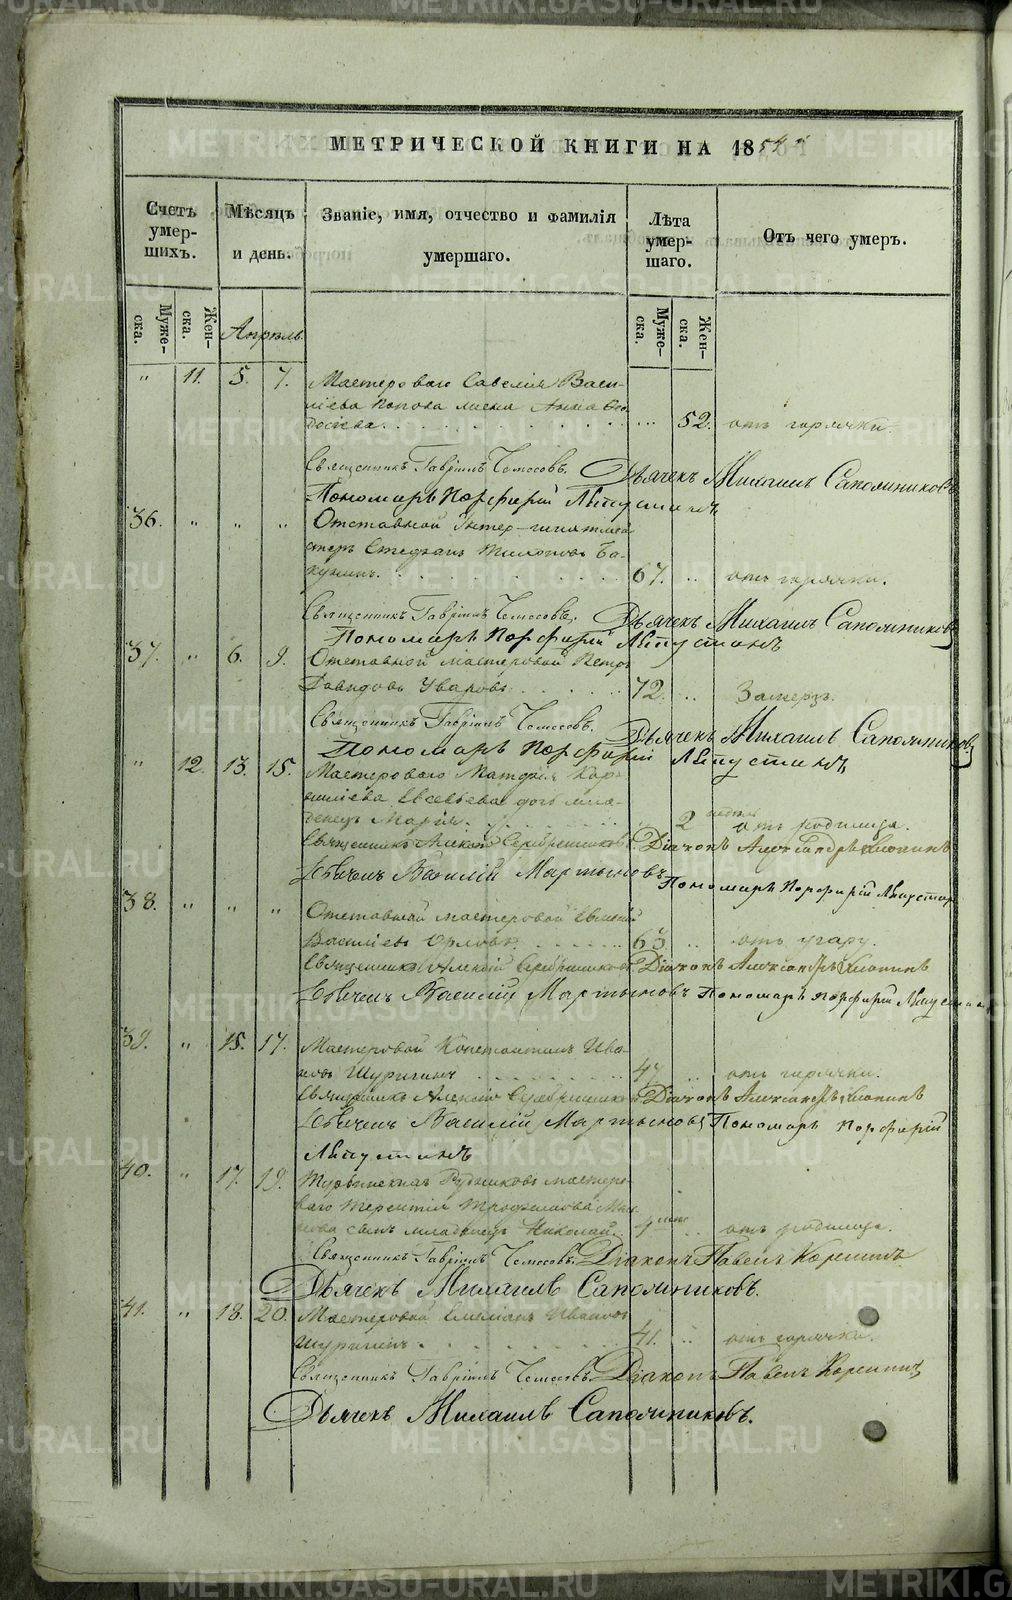 МЕТРИЧЕСКОЙ КНИГИ НА 1854
Счетъ умер- шихъ.
Мѣсяцъ и день.
Званіе, имя, отчество и фамилія умершаго.
Лѣта умер- шаго.
Отъ чего умеръ.
Муже- ска. Жен- ска. Апрѣль Муже- ска. Жен- ска.
" 11. 5. 7. Мастероваго Савелія Васи-
ліева Попова жена Анна Ѳео-
досіева. 52. отъ горячки.
Священникъ Гавріилъ Дьячекъ Михаилъ Сапожниковъ
Пономарь Порфирій
36. " " " Отставной Унтер-шихтмей-
стеръ Стефанъ Ба-
67. отъ горячки.
Священникъ Гавріилъ Дьячекъ Михаилъ Сапожниковъ
Пономарь Порфирій
37. " 6. 9. Отставной мастеровой Петръ
Давидовъ Уваровъ 72. Замерзъ.
Священникъ Гавріилъ Дьячекъ Михаилъ Сапожниковъ
Пономарь Порфирій
" 12. 13. 15. Мастероваго Матфія Кор-
ниліева Евсеева дочь мла-
денецъ Марія. 2 отъ родимца.
Священникъ Алексій Серебренниковъ Діаконъ Александръ
Василій Мартыновъ Пономарь Порфирій
38. " " " Отставной мастеровой
Василіевъ Орловъ. 63 отъ угару.
Священникъ Алексій Серебренниковъ Діаконъ Александръ
Василій Мартыновъ Пономарь Порфирій
39. " 15. 17. Мастеровой Константинъ Ива-
новъ Шуригинъ 47 отъ горячки.
Священникъ Алексій Серебренниковъ Діаконъ Александръ
Василій Мартыновъ Пономарь Порфирій
40. " 17. 19. Турьинскихъ Рудниковъ мастеро-
ваго Терентія
сынъ младенецъ Николай. отъ родимца.
Священникъ Гавріилъ Діаконъ Павелъ
Дьячекъ Михаилъ Сапожниковъ.
41. " 18. 20. Мастеровой Емеліанъ Ивановъ
Шуригинъ. 41. отъ горячки.
Священникъ Гавріилъ Діаконъ Павелъ
Дьячекъ Михаилъ Сапожниковъ.
METRIKI.GASO-URAL.RU